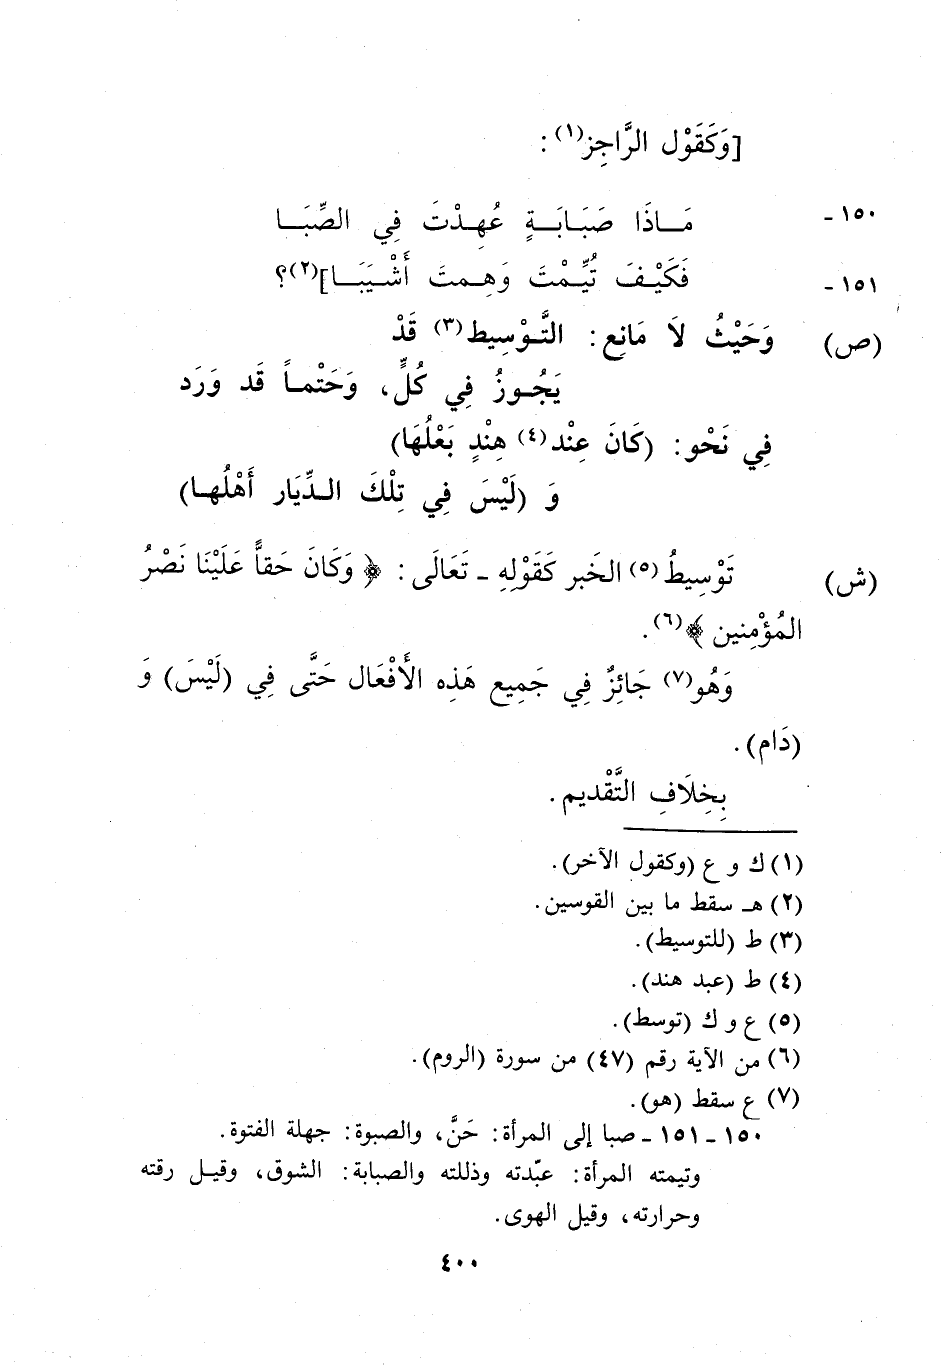 [وَكَقَوْل الرَّاجِز(١):
١٥٠- مَـاذَا صَبَـابَـةٍ عُهِـدْتَ فِي الصِّبَـا
١٥١- فَكَيْـفَ تُيِّـمْتَ وَهِـمتَ أَشْيَبَـا](٢)؟
(ص) وَحَيْثُ لَا مَانِع: التَّـوْسِيط(٣) قَدْ
يَجُـوزُ فِي كُلٍّ، وَحَتْمـاً قَد وَرَد
فِي نَحْو: (كَانَ عِنْد(٤) هِنْدٍ بَعْلُهَا)
وَ (لَيْسَ فِي تِلْكَ الـدِّيَار أَهْلُهـا)
(ش) تَوْسِيطُ(٥) الخَبر كَقَوْلِهِ - تَعَالَى: ﴿وَكَانَ حَقاًّ عَلَيْنَا نَصْرُ
المُؤْمِنِين﴾(٦).
وَهُو(٧) جَائِزٌ فِي جَمِيع هَذِه الأَفْعَال حَتَّى فِي (لَيْسَ) وَ
(دَام).
بِخِلَافِ التَّقْدِيم.
(١) ك و ع (وكقول الآخر).
(٢) هـ سقط ما بين القوسين.
(٣) ط (للتوسيط).
(٤) ط (عبد هند).
(٥) ع و ك (توسط).
(٦) من الآية رقم (٤٧) من سورة (الروم).
(٧) ع سقط (هو).
١٥٠ - ١٥١ - صبا إلى المرأة: حَنَّ، والصبوة: جهلة الفتوة.
وتيمته المرأة: عبّدته وذللته والصبابة: الشوق، وقيـل رقته
وحرارته، وقيل الهوى.
٤٠٠